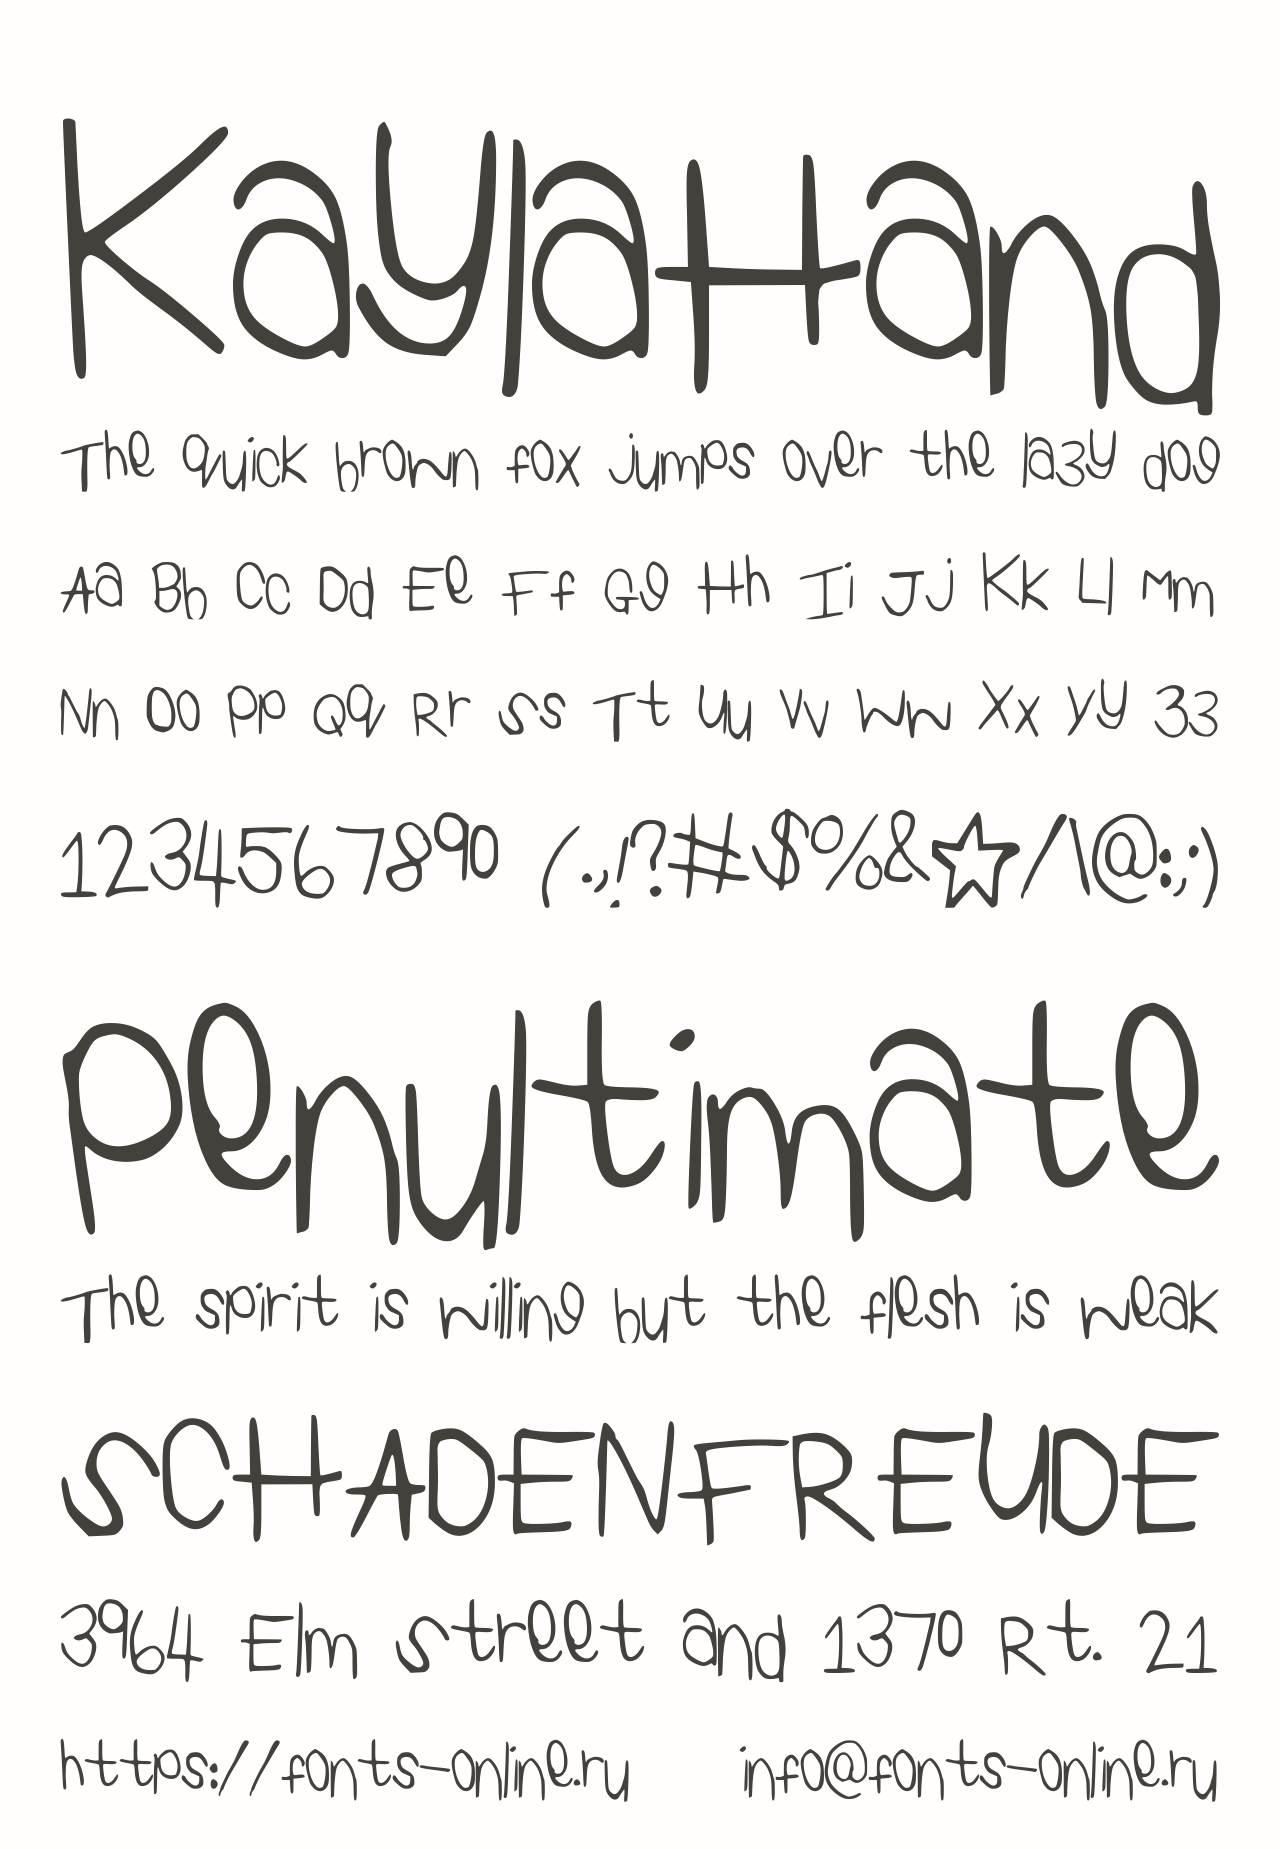 KaylaHand
The quick brown fox jumps over the lazy dog
Aa Bb Cc Dd Ee Ff Gg Hh Ii Jj Kk Ll Mm
Nn Oo Pp Qq Rr Ss Tt Uu Vv Ww Xx Yy Zz
1234567890 (.,!?#$%&☆/\@:;)
Penultimate
The spirit is willing but the flesh is weak
SCHADENFREUDE
3964 Elm Street and 1370 Rt. 21
https://fonts-online.ru info@fonts-online.ru